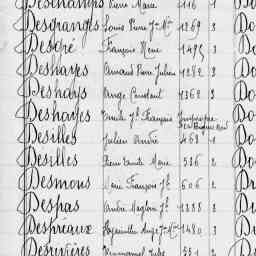 Deschamps Pierre Marie 116 1 Do
Desgranges Louis Pierre Jn Mie 1269 3 Do
Desgré François René 1495 3 Do
Deshayes Armand Pierre Julien 1282 3 Do
Deshays Ange Constant 1362 3 Do
Deshoyes Emile Jh François
Desilles Julien André 468 1 Do
Desilles Pierre Emile Marie 586 2 Do
Desmons René François Jh 606 2 Dr
Despas André Magloire Jh 1288 3 D
Despréaux Hyacinthe Ange Mie 1480 3 D
Desrivières Emmanuel Jules 551 2 D